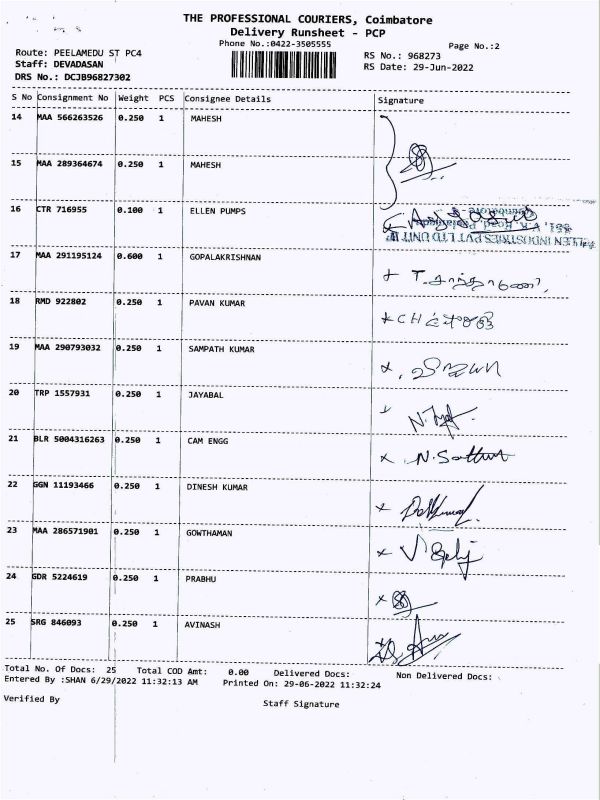 THE PROFESSIONAL COURIERS, Coimbatore
Delivery Runsheet - PCP
Phone No.:0422-3505555
Page No.:2
Route: PEELAMEDU ST PC4
Staff: DEVADASAN
DRS No.: DCJB96827302
RS No.: 968273
RS Date: 29-Jun-2022
S No Consignment No Weight PCS Consignee Details Signature
14 MAA 566263526 0.250 1 MAHESH
15 MAA 289364674 0.250 1 MAHESH
16 CTR 716955 0.100 1 ELLEN PUMPS
ELLEN INDUSTRIES PVT LTD UNIT
17 MAA 291195124 0.600 1 GOPALAKRISHNAN
18 RMD 922802 0.250 1 PAVAN KUMAR
19 MAA 290793032 0.250 1 SAMPATH KUMAR
20 TRP 1557931 0.250 1 JAYABAL
21 BLR 5004316263 0.250 1 CAM ENGG
22 GGN 11193466 0.250 1 DINESH KUMAR
23 MAA 286571901 0.250 1 GOWTHAMAN
24 GDR 5224619 0.250 1 PRABHU
25 SRG 846093 0.250 1 AVINASH
Total No. Of Docs: 25 Total COD Amt: 0.00 Delivered Docs: Non Delivered Docs:
Entered By :SHAN 6/29/2022 11:32:13 AM Printed On: 29-06-2022 11:32:24
Verified By Staff Signature